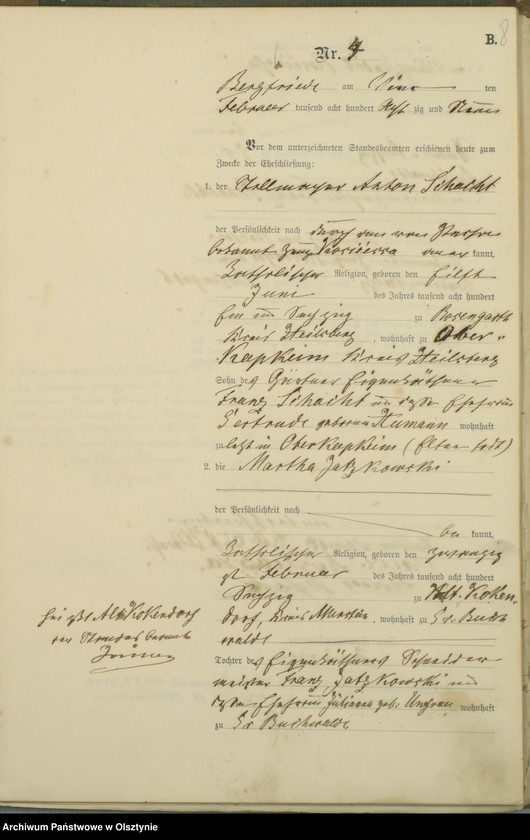 B. 8
Nr. 4
Bergfriede am ten
Februar tausend acht hundert acht zig und Neun
Vor dem unterzeichneten Standesbeamten erschienen heute zum
Zwecke der Eheschließung:
1. der Stellmacher Anton Schacht
der Persönlichkeit nach durch den
bekannt kannt,
katholischer Religion, geboren den
Juni des Jahres tausend acht hundert
Ein und Sechzig zu Rosengarth
Kreis Heilsberg, wohnhaft zu Ober-
Kapkeim Kreis Heilsberg
Sohn des Gärtner Eigenkäthner
Franz Schacht und dessen Ehefrau
Gertrude geborene wohnhaft
zuletzt in Oberkapkeim (Eltern todt)
2. die Martha Jatzkowski
der Persönlichkeit nach
be kannt,
katholischer Religion, geboren den zwanzig
st Februar des Jahres tausend acht hundert
Sechzig zu Alt. Koken-
dorf, Kreis, wohnhaft zu Gr. Buch
walde
Tochter des Eigenkäthners Schneider
meister Franz Jatzkowski und
dessen Ehefrau Julianna geb. wohnhaft
zu Gr Buchwalde
Alt Kokendorf
der Standesbeamte
Archiwum Państwowe w Olsztynie